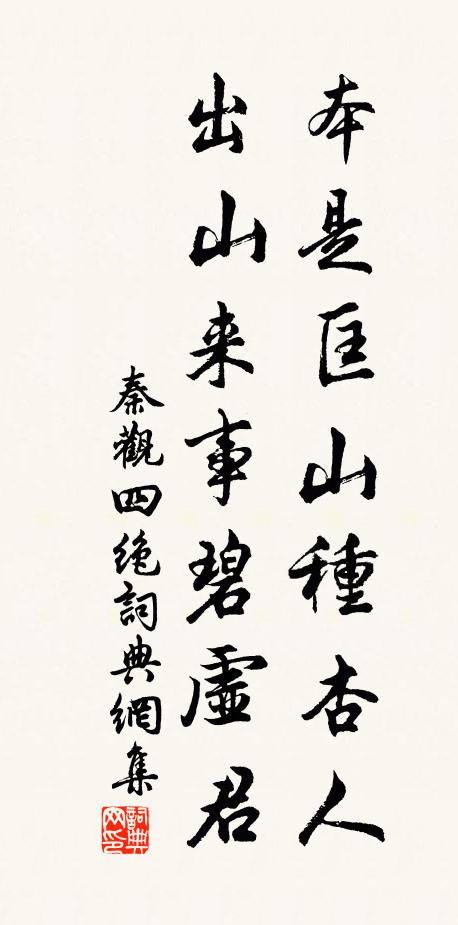 本是匡山種杏人
出山来事碧虛君
秦觀四绝詞典網集
詞典网印